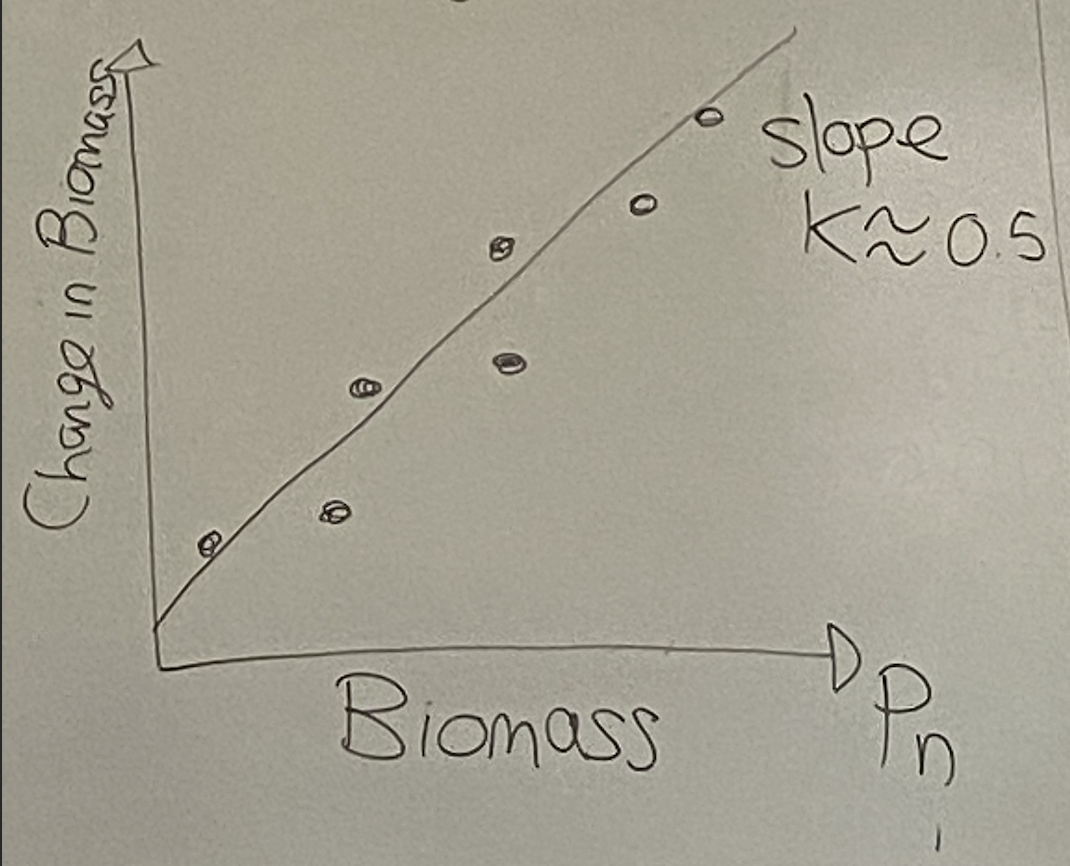 Change in Biomass
slope
K≈0.5
Biomass
Pn